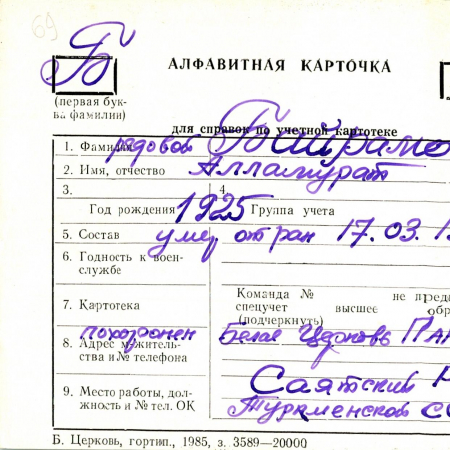 69
Б
АЛФАВИТНАЯ КАРТОЧКА
(первая бук-
ва фамилии)
для справок по учетной картотеке
1. Фамилия рядовой Байрамо
2. Имя, отчество Алламурат
3. 4.
Год рождения 1925 Группа учета
5. Состав умер от ран 17.03.19
6. Годность к воен-
службе
7. Картотека
Команда № не предн
спецучет высшее обр
(подчеркнуть)
похоронен Белая Церковь
8. Адрес жительс-
тва и № телефона
9. Место работы, дол-
жность и № тел. ОК
Саятский
Туркменской СС
Б. Церковь, гортип., 1985, з. 3589—20000